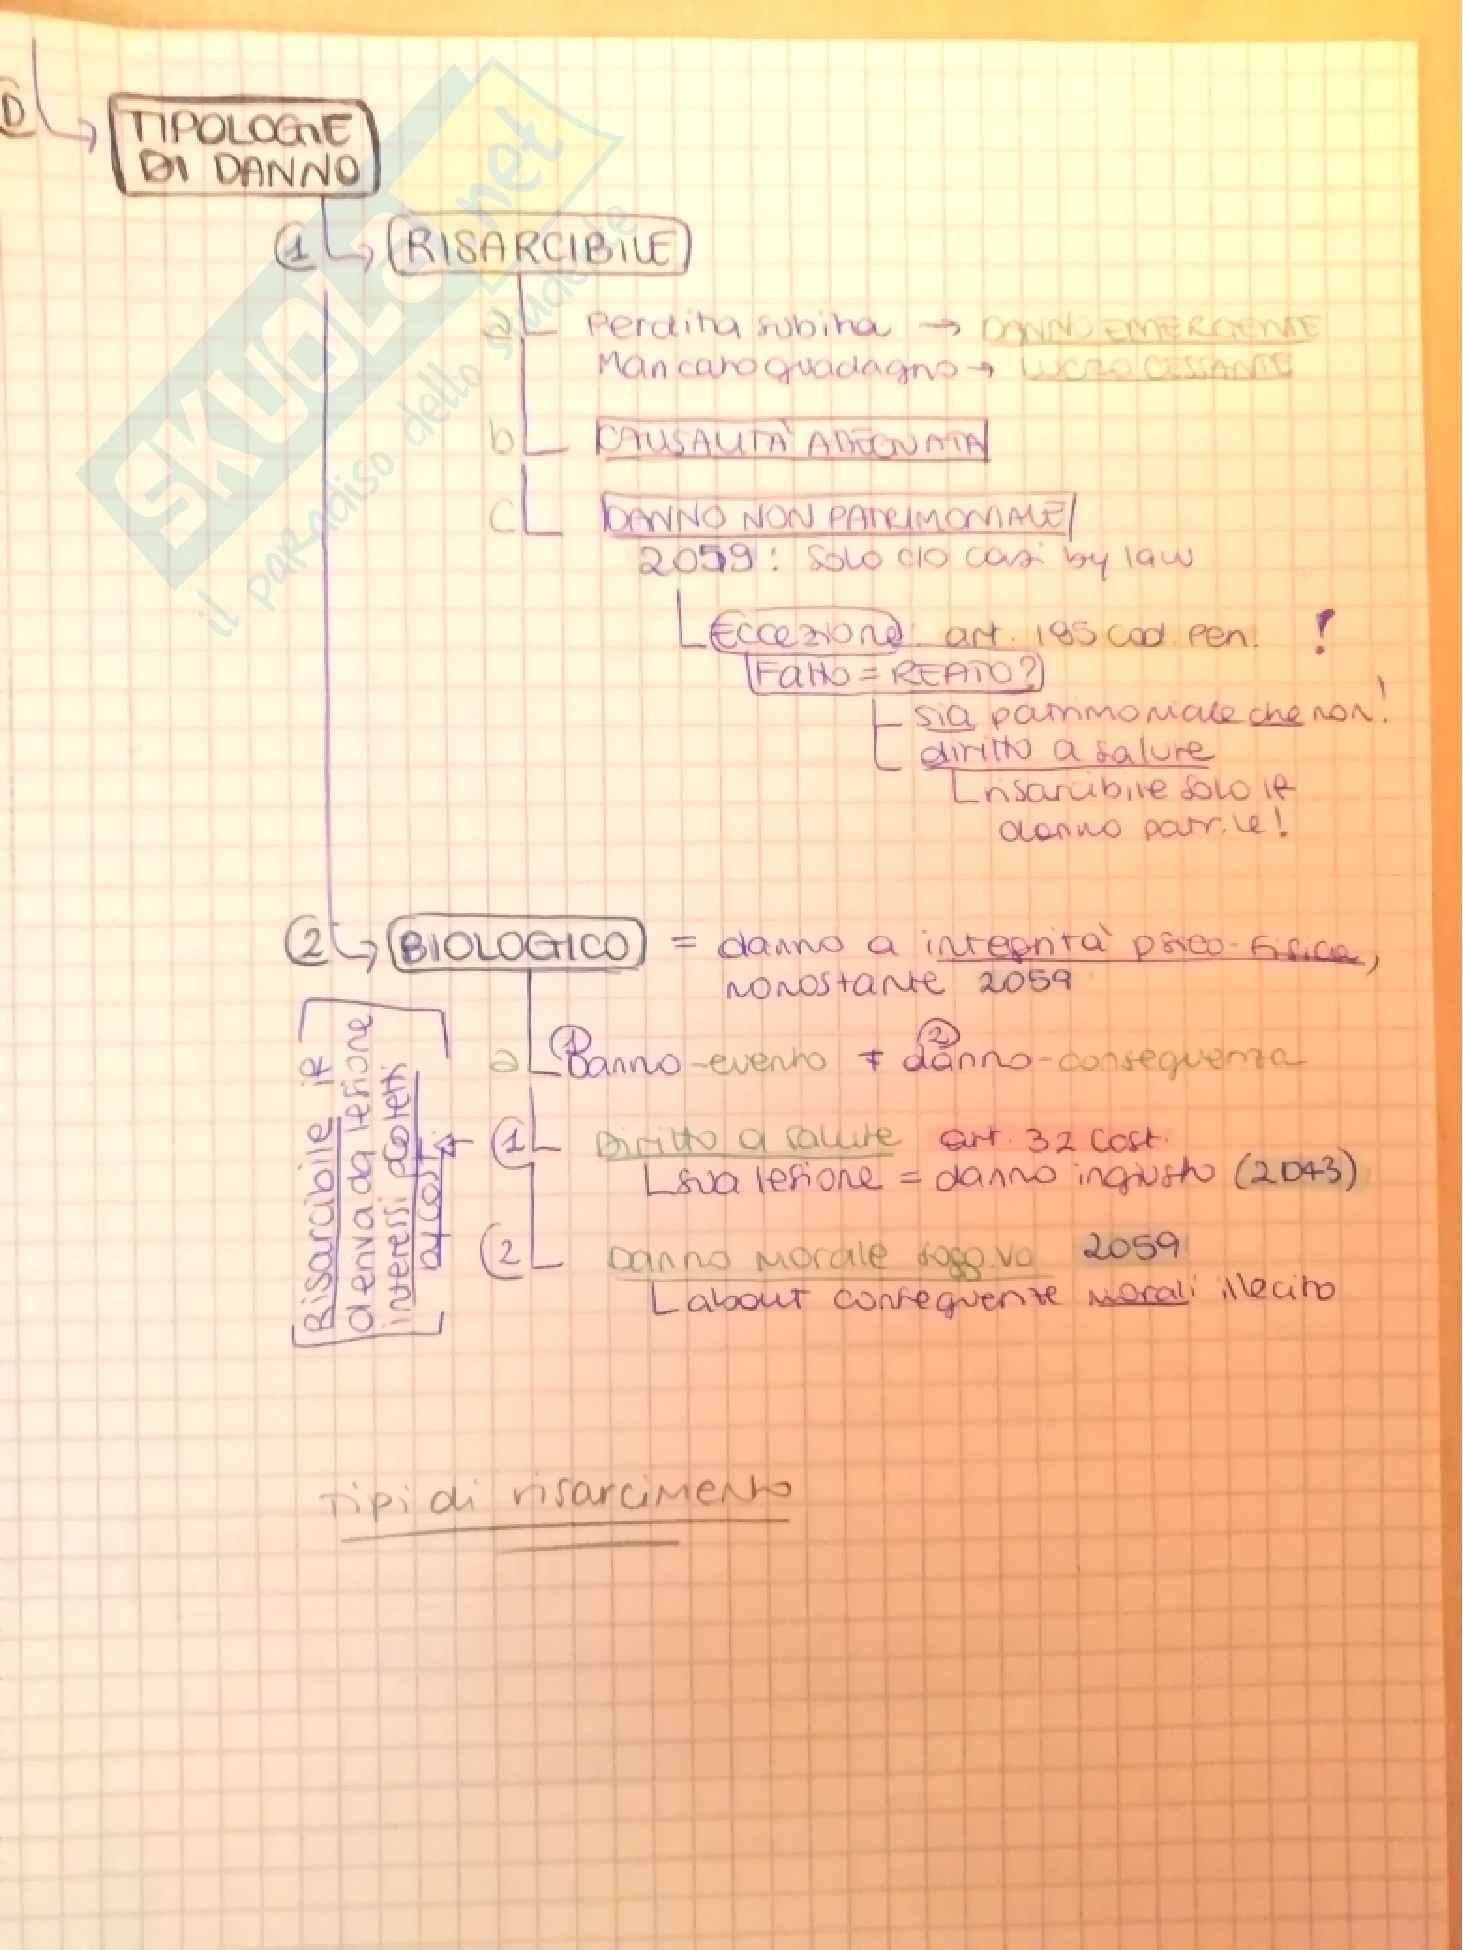 D
TIPOLOGIE
DI DANNO
1 RISARCIBILE
a Perdita subita → DANNO EMERGENTE
Mancato guadagno → LUCRO CESSANTE
b CAUSALITÀ ADEGUATA
c DANNO NON PATRIMONIALE
2059: solo c/o casi by law
Eccezione: art. 185 cod. pen. !
Fatto = REATO?
sia patrimoniale che non!
diritto a salute
risarcibile solo if
danno patr.le!
2 BIOLOGICO = danno a integrità psico-fisica,
nonostante 2059
a Danno-evento ≠ danno-conseguenza
1 2
1 Diritto a salute art. 32 Cost.
sua lesione = danno ingiusto (2043)
2 Danno morale sogg.vo 2059
about conseguenze morali illecito
Risarcibile if
deriva da lesione
interessi
Tipi di risarcimento
SKUOLA.net
il paradiso dello studente